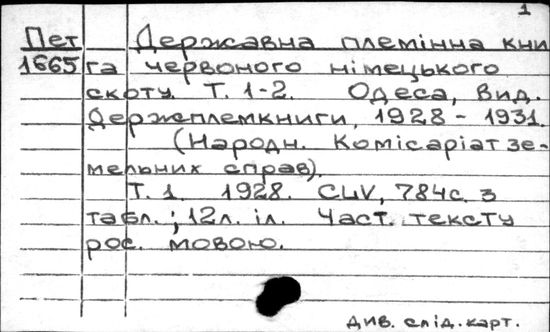 1
Пет Державна племінна кни
1665 га червоного німецького
скоту. Т. 1-2. Одеса, Вид.
Держплемкниги, 1928 - 1931.
(Народн. Комісаріат зе-
мельних справ).
Т. 1. 1928. CLIV, 784с. з
табл.; 12л. іл. Част. тексту
рос. мовою.
див. слід. карт.